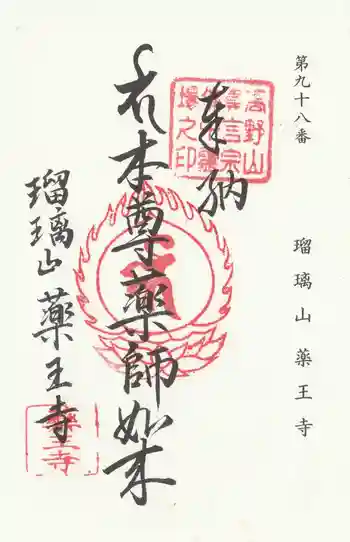 第九十八番　瑠璃山藥王寺
奉納
本尊薬師如来
瑠璃山薬王寺
高野山
真言宗
場之印
藥王寺